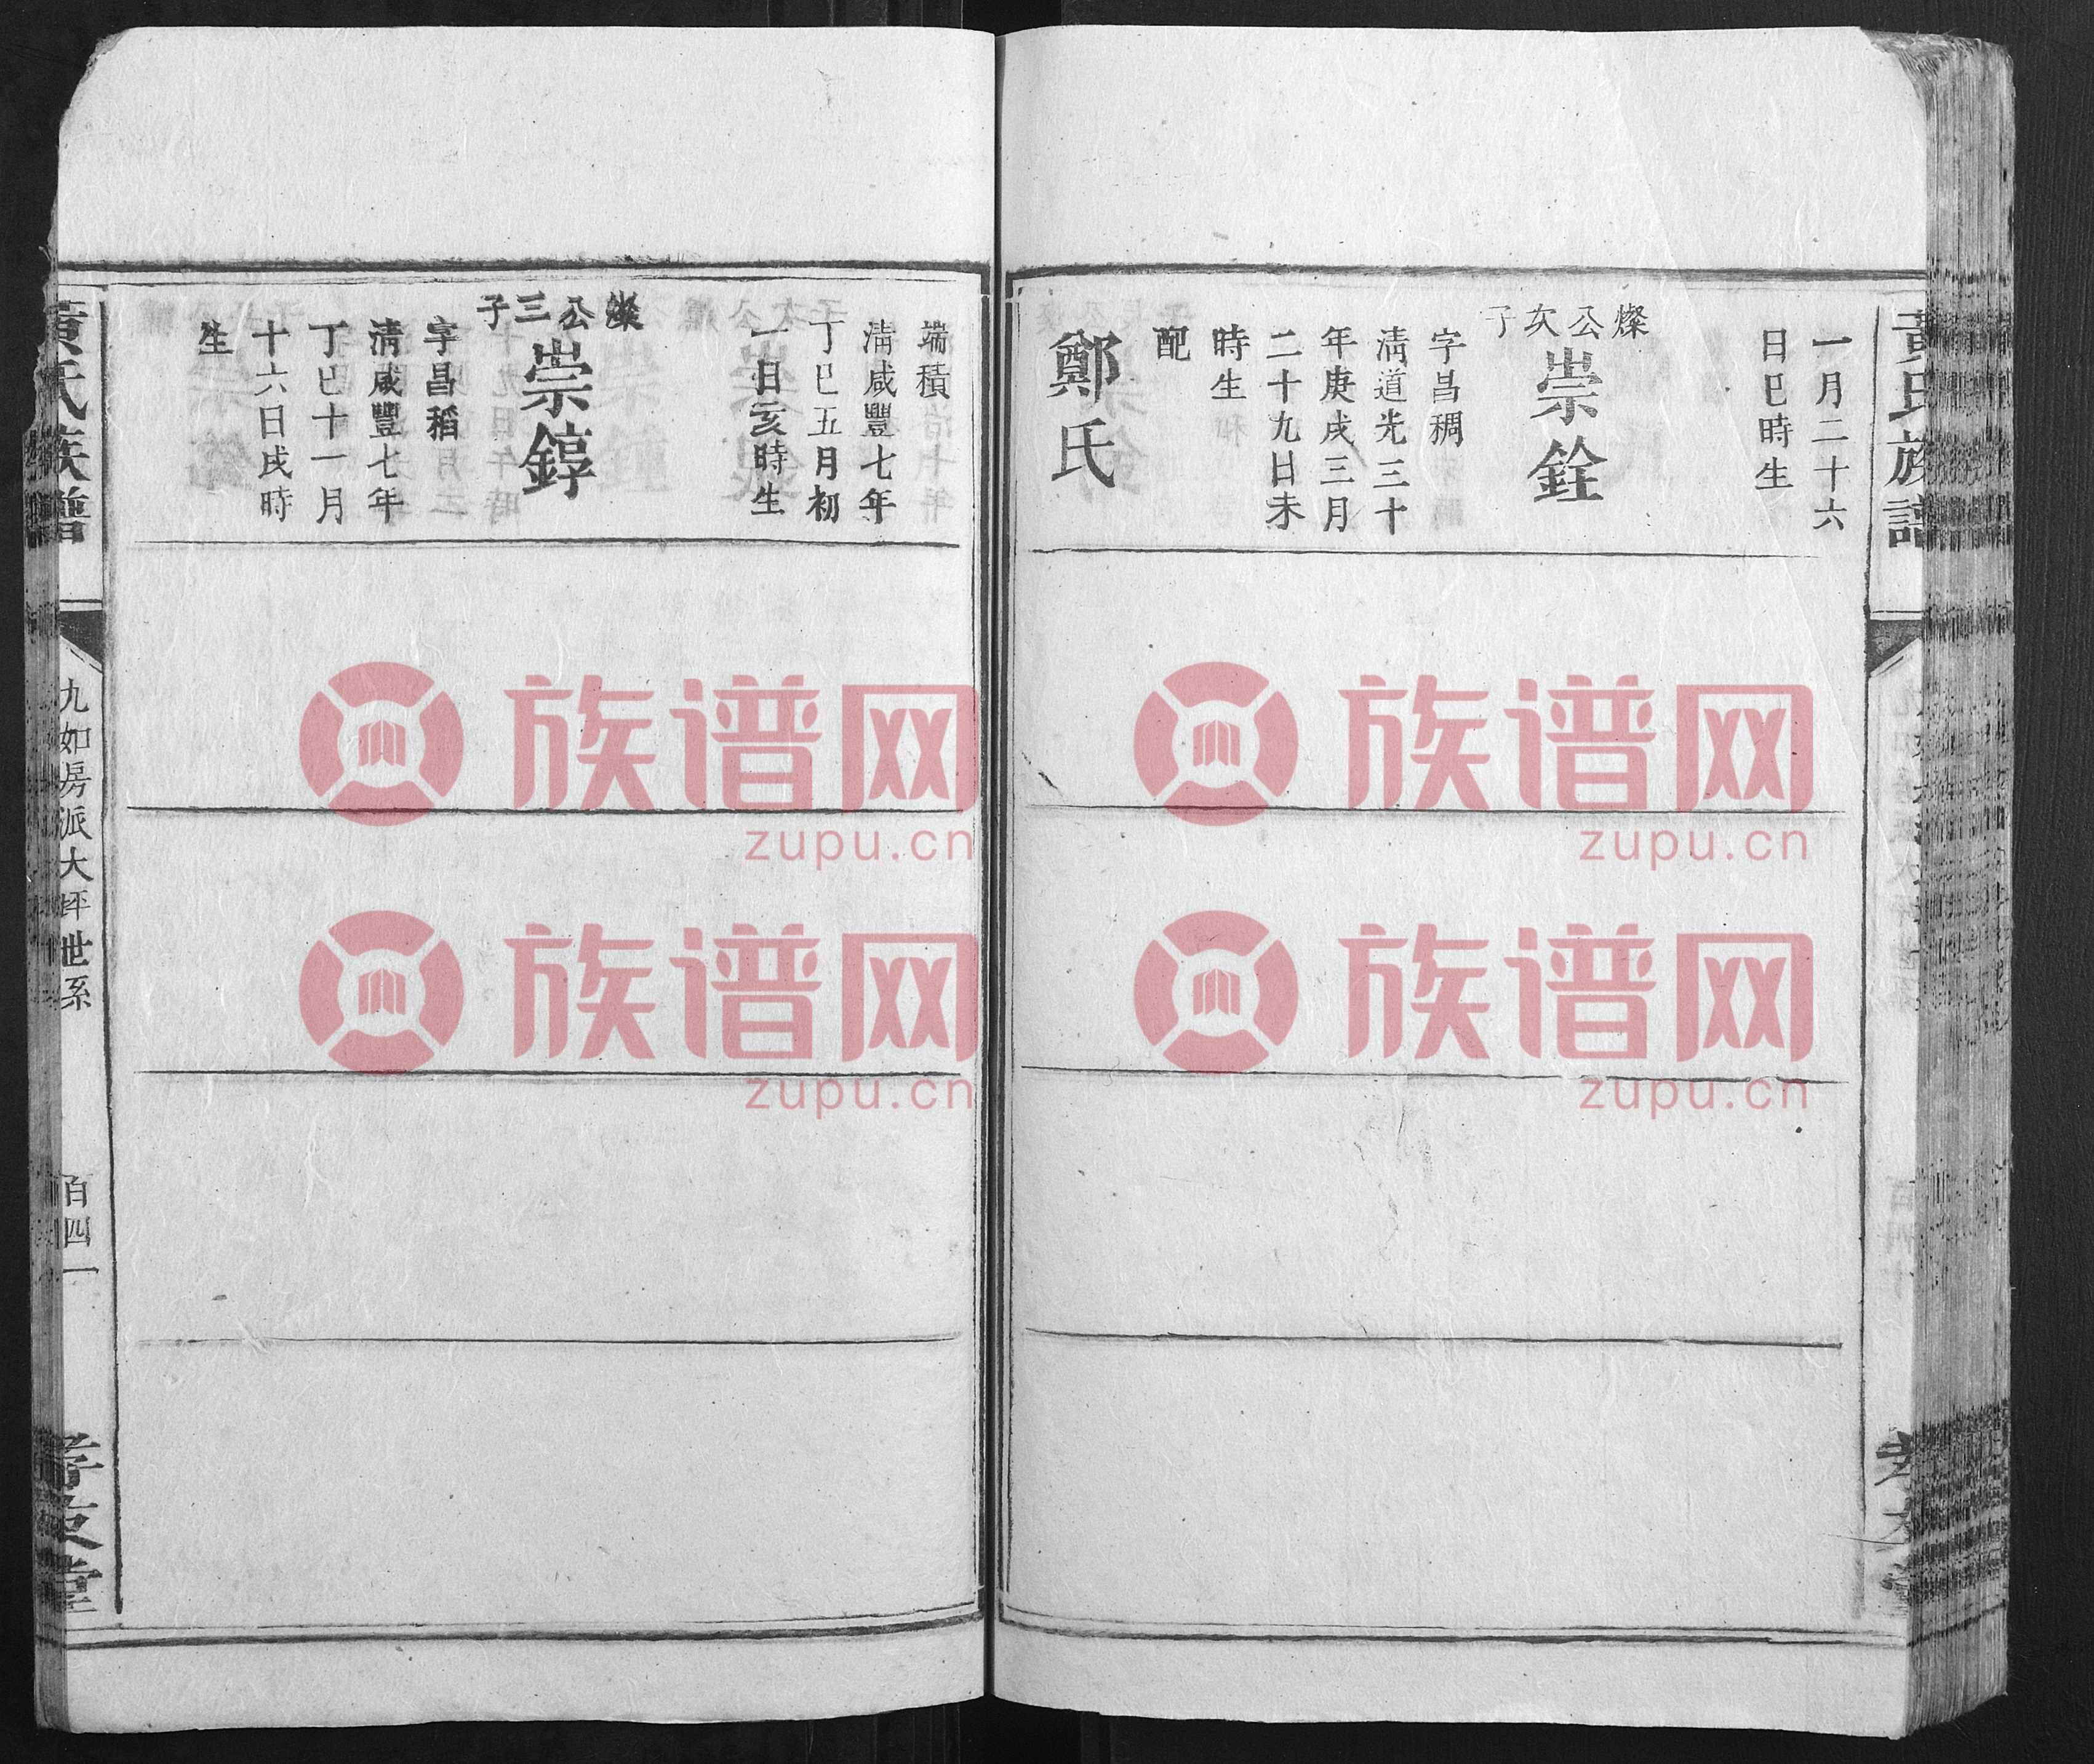 黃氏族譜
一月二十六
日巳時生
燦公次子
崇銓
字昌稠
清道光三十
年庚戌三月
二十九日未
時生
配
鄭氏
端積
清咸豐七年
丁巳五月初
一日亥時生
燦公三子
崇錞
字昌稻
清咸豐七年
丁巳十一月
十六日戌時
生
黃氏族譜
九如房派大坪世系
百四一
族谱网
zupu.cn
族谱网
zupu.cn
族谱网
zupu.cn
族谱网
zupu.cn